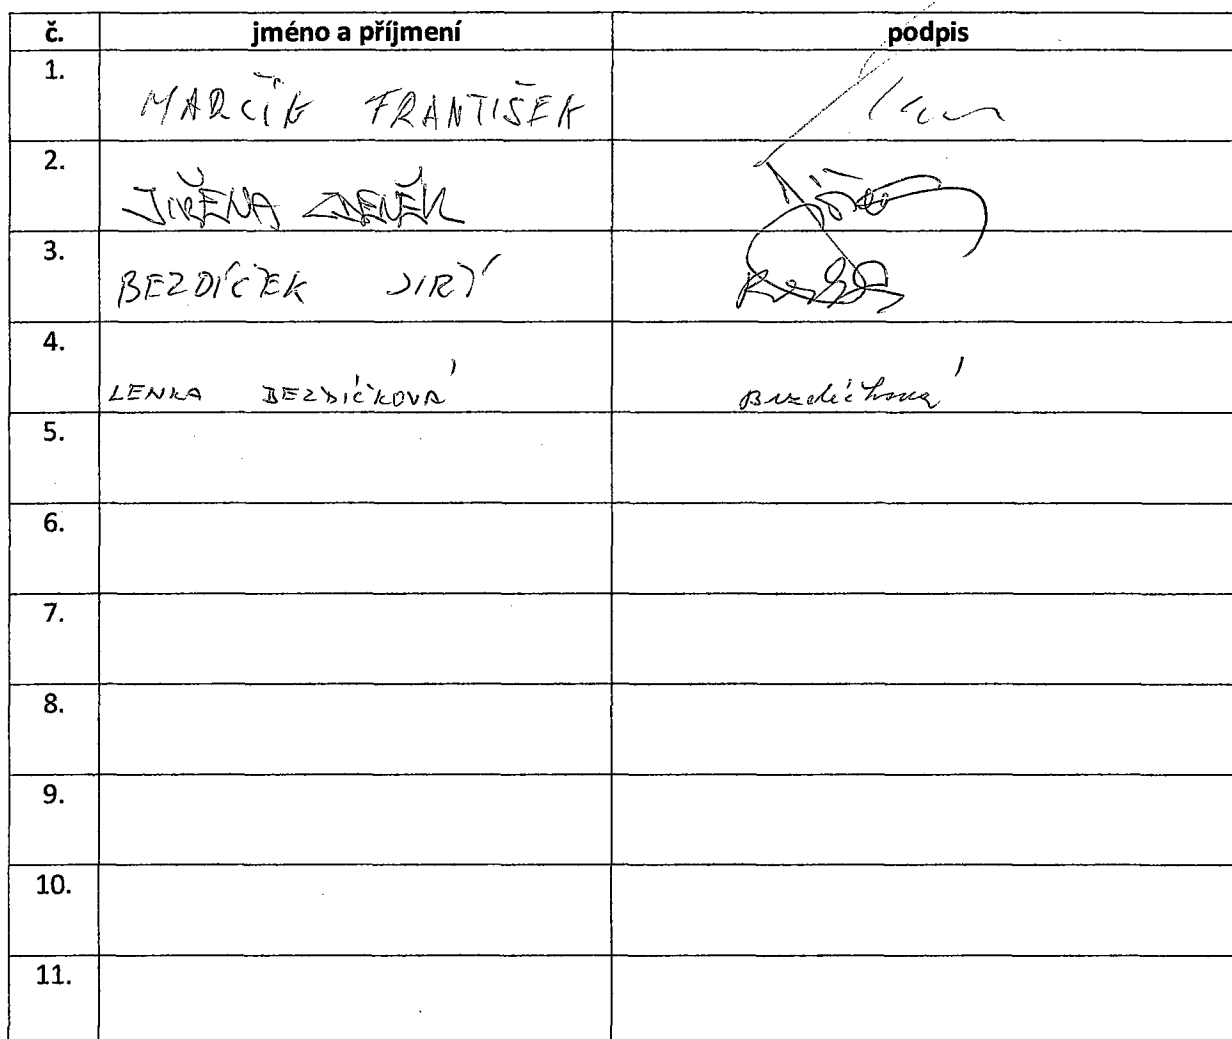 č. jméno a příjmení podpis
1. MARČÍK FRANTIŠEK
2. JIŘENA ZDENĚK
3. BEZDÍČEK JIŘÍ
4. LENKA BEZDÍČKOVÁ Bezdíčková
5.
6.
7.
8.
9.
10.
11.